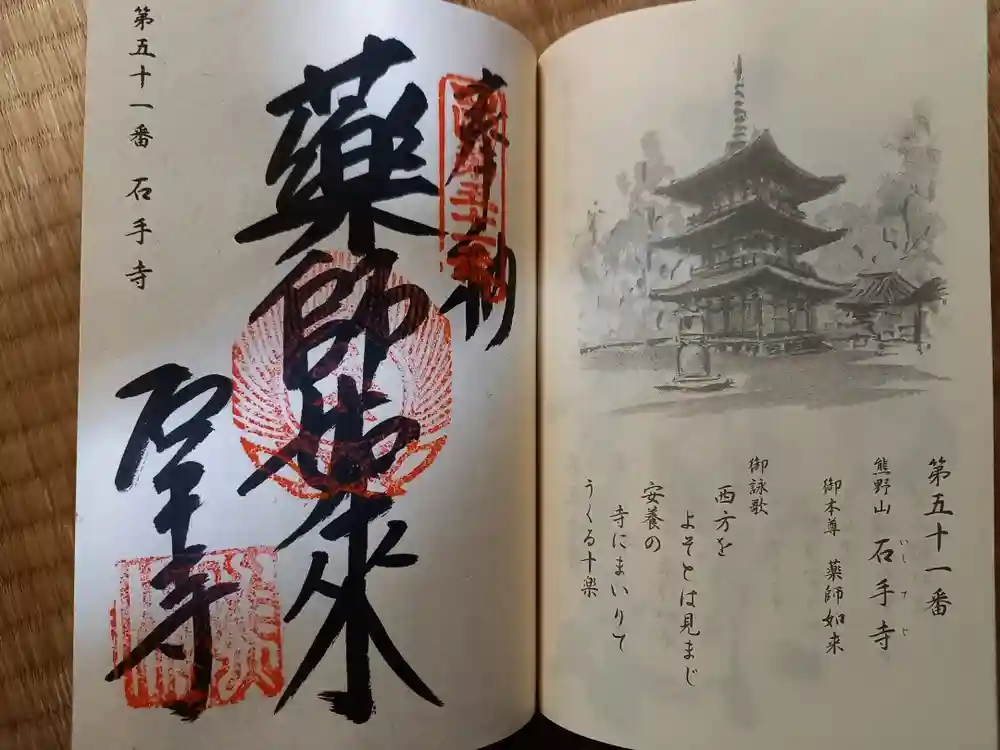 第五十一番
熊野山 石手寺
いしてじ
御本尊 薬師如来
御詠歌
西方を
よそとは見まじ
安養の
寺にまいりて
うくる十楽
奉納
藥師如来
石手寺
第五十一番 石手寺